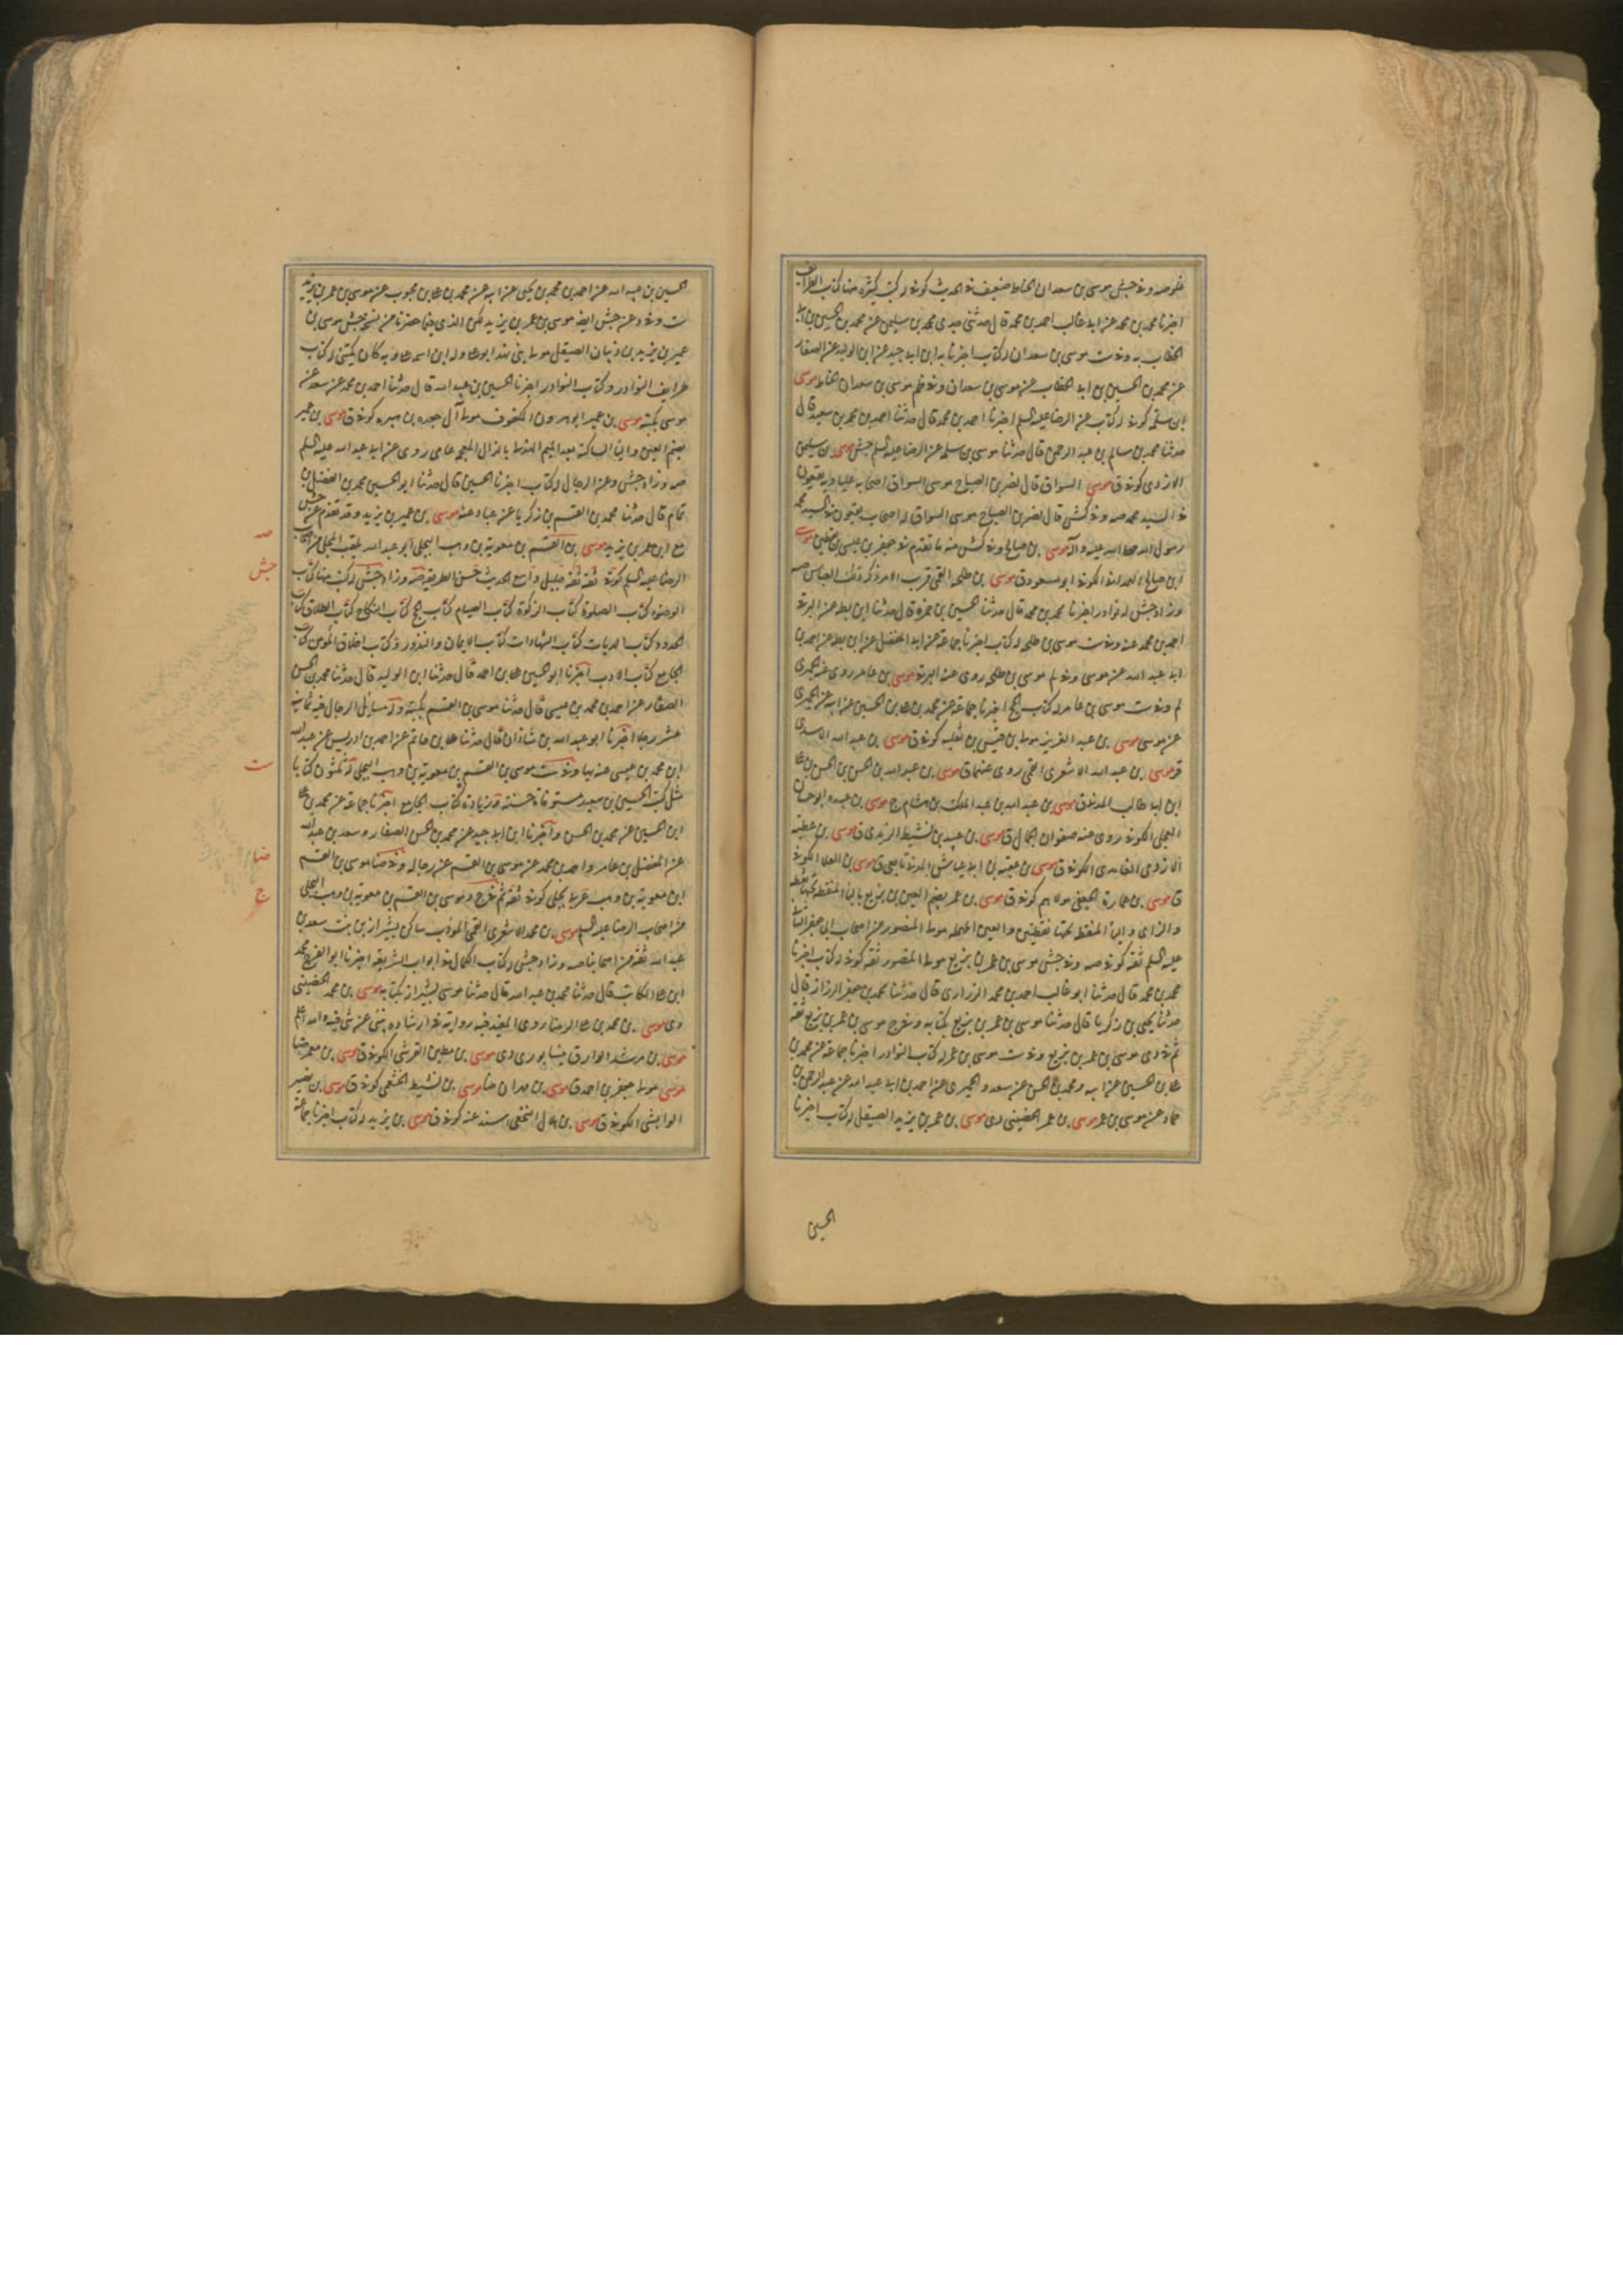 غلو صه وفي جش موسى بن سعدان الحناط ضعيف في الحديث كوفي له كتب كثيرة منها كتاب الطرائف
اخبرنا محمد بن محمد عن ابي غالب احمد بن محمد قال حدثني جدي محمد بن سليمن عن محمد بن الحسين بن ابي
الخطاب به وفي ست موسى بن سعدان له كتاب اخبرنا به ابن ابي جيد عن ابن الوليد عن الصفار
عن محمد بن الحسين بن ابي الخطاب عن موسى بن سعدان وفي ظم موسى بن سعدان الحناط موسى
بن سلمة كوفي له كتاب عن الرضا عليه السلم اخبرنا احمد بن محمد قال حدثنا احمد بن محمد بن سعيد قال
حدثنا محمد بن سالم بن عبد الرحمن قال حدثنا موسى بن سلمة عن الرضا عليه السلم جش موسى بن سليمن
الازدي كوفي ق موسى السواق قال نصر بن الصباح موسى السواق اصحابه علياوية يقعون
في السيد محمد صه وفي كش قال نصر بن الصباح موسى السواق له اصحاب يقعون في السيد محمد
رسول الله صلى الله عليه وآله موسى بن صالح وفي كش منه ما تقدم في جعفر بن عيسى بن يقطين موسى
ابن صالح الهمداني الكوفي ابو مسعود ق موسى بن طلحة القمي قريب الامر ذكر ذلك ابو العباس صه
وزاد جش له نوادر اخبرنا محمد بن محمد قال حدثنا الحسين بن حمزة قال حدثنا ابن بطة عن البرقي
احمد بن محمد عنه وفي ست موسى بن طلحة له كتاب اخبرنا جماعة عن ابي المفضل عن ابن بطة عن احمد بن
ابي عبد الله عن موسى وفي لم موسى بن طلحة روى عنه البرقي موسى بن عامر روى عنه الحميري
لم وفي ست موسى بن عامر له كتاب الحج اخبرنا جماعة عن محمد بن علي بن الحسين عن ابيه عن الحميري
عن موسى موسى بن عبد العزيز مولى بن قيس بن ثعلب كوفي ق موسى بن عبد الله الاسدي
ق موسى بن عبد الله الاشعري القمي روى عنهما ق موسى بن عبد الله بن الحسن بن الحسن بن علي
ابن ابي طالب المدني ق موسى بن عبد الله بن عبد الملك بن هشام ج موسى بن عبده ابو حسان
العجلي الكوفي روى عنه صفوان الجمال ق موسى بن عبيد بن نشيط الزيدي ق موسى بن عطية
الازدي الغامدي الكوفي ق موسى بن عقبة بن ابي عياش المدني تابعي ق موسى بن العلا الكوفي
ق موسى بن عمارة الجعفي مولاهم كوفي ق موسى بن عمر بضم العين بن بزيع بالباء المنقطة تحتها نقطة
والزاي والياء المنقطة تحتها نقطتين والعين المهملة مولى المنصور من اصحاب ابي جعفر الثاني
عليه السلم ثقة كوفي صه وفي جش موسى بن عمر بن بزيع مولى المنصور ثقة كوفي له كتاب اخبرنا
محمد بن محمد قال حدثنا ابو غالب احمد بن محمد الزراري قال حدثنا محمد بن جعفر الرزاز قال
حدثنا يحيى بن زكريا قال حدثنا موسى بن عمر بن بزيع بكتابه وفي ج موسى بن عمر بن بزيع ثقة
ثم في دي موسى بن عمر بن بزيع وفي ست موسى بن عمر له كتاب النوادر اخبرنا جماعة عن محمد بن
علي بن الحسين عن ابيه ومحمد بن الحسن عن سعد والحميري عن احمد بن ابي عبد الله عن عبد الرحمن بن
حماد عن موسى بن عمر موسى بن عمر الحضيني دي موسى بن عمر بن يزيد الصيقل له كتاب اخبرنا
الحسين
الحسين بن عبيد الله عن احمد بن محمد بن يحيى عن ابيه عن محمد بن علي بن محبوب عن موسى بن عمر بن يزيد
ست وفي د عن جش ايضا موسى بن عمر بن يزيد لكن الذي فيما حضرنا من نسخ جش موسى بن
عمر بن يزيد بن ذبيان الصيقل مولى بني نهد ابو علي وله ابن اسمه علي وبه كان يكنى له كتاب
طرايف النوادر وكتاب النوادر اخبرنا الحسين بن عبيد الله قال حدثنا احمد بن محمد عن سعد عن
موسى بكتبه موسى بن عمير ابو هرون المكفوف مولى آل جعدة بن هبيرة كوفي ق موسى بن عمير
بضم العين والياء الساكنة بعد الميم الهذلي بالذال المعجمة عامي روى عن ابي عبد الله عليه السلم
صه وزاد جش وعن الرجال له كتاب اخبرنا الحسين قال حدثنا ابو الحسين محمد بن الفضل بن
تمام قال حدثنا محمد بن القسم بن زكريا عن عباد عنه موسى بن عمير بن يزيد وقد تقدم عن جش
مع ابن عمر بن يزيد موسى بن القسم بن معوية بن وهب البجلي ابو عبد الله يلقب المجلي من اصحاب
الرضا عليه السلم كوفي ثقة ثقة جليل واضح الحديث حسن الطريقة صه وزاد جش له كتب منها كتاب
الوضوء كتاب الصلوة كتاب الزكوة كتاب الصيام كتاب الحج كتاب النكاح كتاب الطلاق كتاب
الحدود كتاب الديات كتاب الشهادات كتاب الايمان والنذور كتاب اخلاق المؤمن كتاب
الجامع كتاب الادب اخبرنا ابو الحسين علي بن احمد قال حدثنا ابن الوليد قال حدثنا محمد بن الحسن
الصفار عن احمد بن محمد بن عيسى قال حدثنا موسى بن القسم بكتبه وله مسايل الرجال فيه ثمانية
عشر رجلا اخبرنا ابو عبد الله بن شاذان قال حدثنا علي بن حاتم عن احمد بن ادريس عن عبد الله
ابن محمد بن عيسى عنه بها وفي ست موسى بن القسم بن معوية بن وهب البجلي له ثلثون كتابا
مثل كتب الحسين بن سعيد مستوفاة حسنة وزيادة كتاب الجامع اخبرنا جماعة عن محمد بن علي
ابن الحسين عن محمد بن الحسن واخبرنا ابن ابي جيد عن محمد بن الحسن الصفار وسعد بن عبد الله
عن المفضل بن عامر واحمد بن محمد عن موسى بن القسم عن رجاله وفي ضا موسى بن القسم
ابن معوية بن وهب عربي بجلي كوفي ثقة ثم في ج موسى بن القسم بن معوية بن وهب البجلي
من اصحاب الرضا عليه السلم موسى بن محمد الاشعري القمي المؤدب ساكن بشيراز بن بنت سعد بن
عبد الله ثقة من اصحابنا صه وزاد جش له كتاب الكمال في ابواب الشريعة اخبرنا ابو الفرج محمد
ابن علي الكاتب قال حدثنا محمد بن عبد الله قال حدثنا موسى بشيراز بكتابه موسى بن محمد الحضيني
دي موسى بن محمد بن علي الرضا روى المفيد فيه
موسى بن مرشد الوراق نيشابوري دي موسى بن مطين القرشي الكوفي ق موسى بن معمر ضا
موسى مولى جعفر بن احمد ق موسى بن مهران ضا موسى بن نشيط الخثعمي كوفي ق موسى بن نصير
الوابشي الكوفي ق موسى بن هلال النخعي اسند عنه كوفي ق موسى بن يزيد له كتاب اخبرنا جماعة
صه
جش
ست
ضا
ج